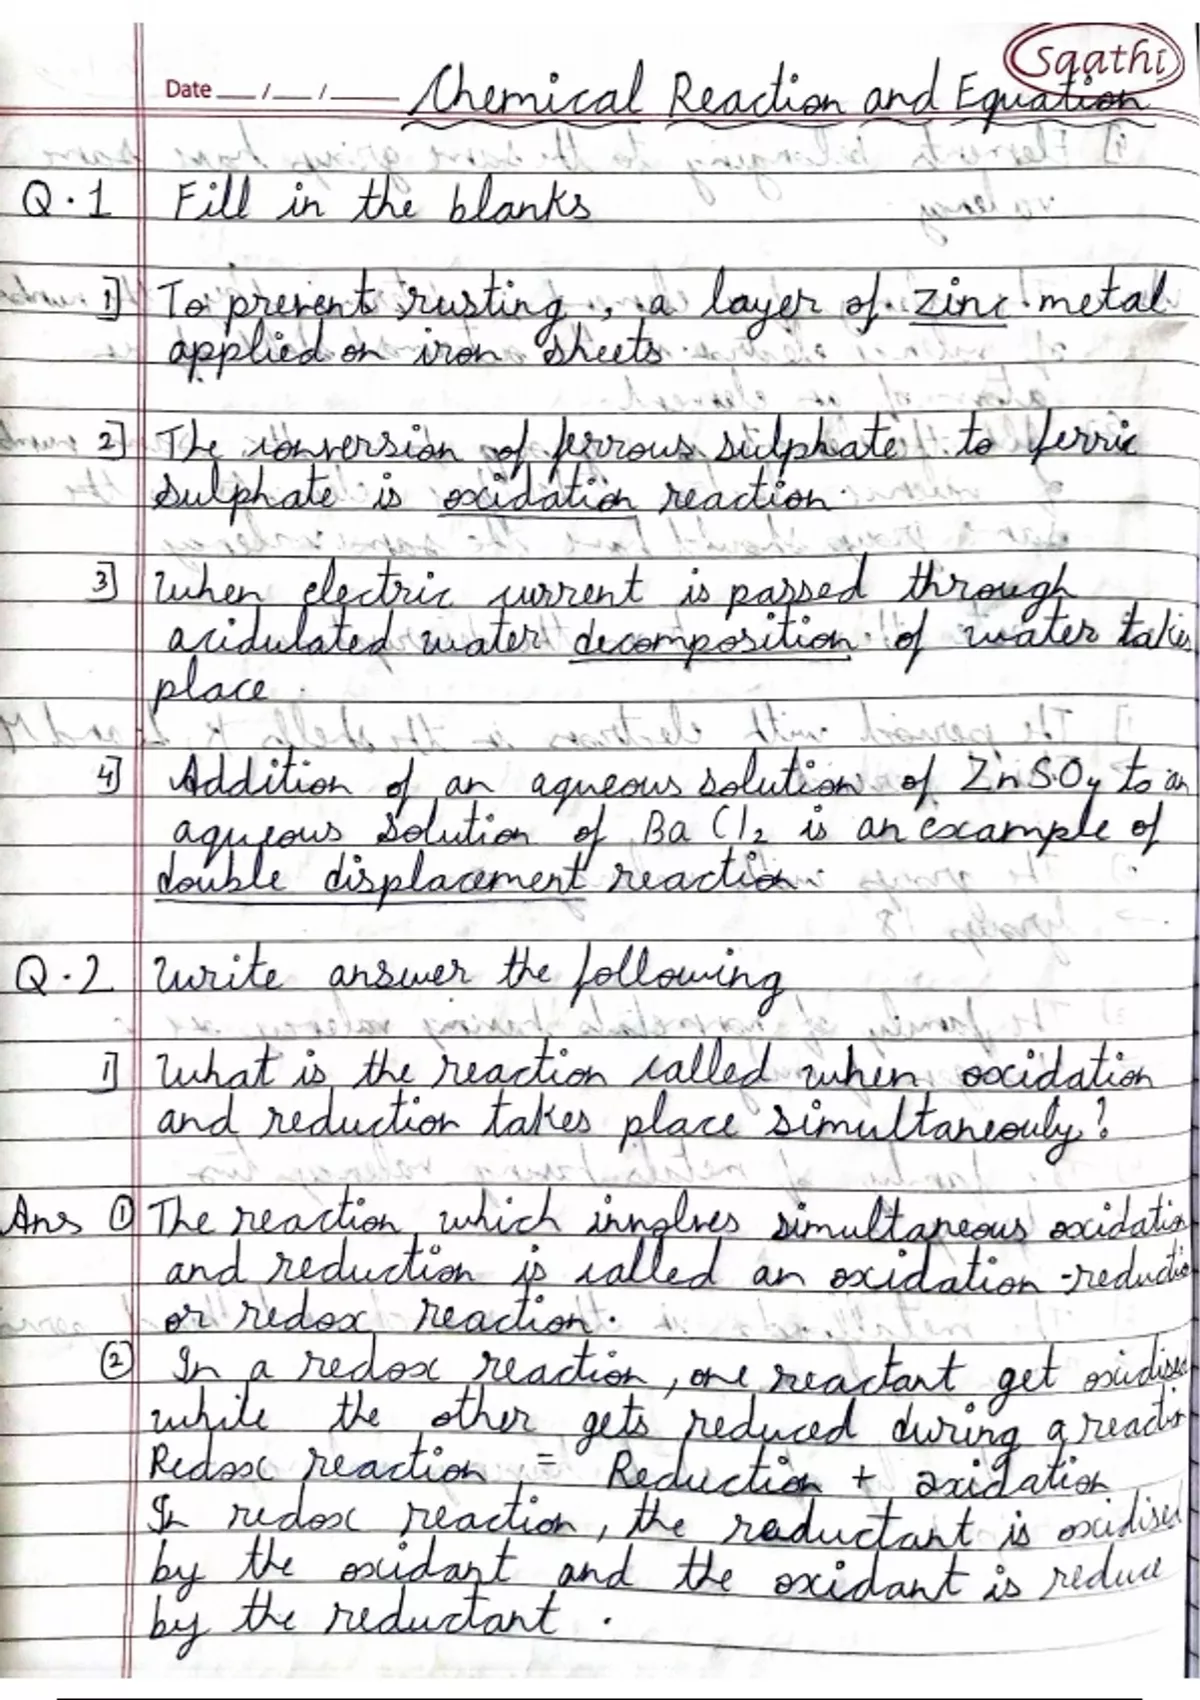 Saathi
Date __/__/____ Chemical Reaction and Equation
Q.1 Fill in the blanks
1] To prevent rusting, a layer of zinc metal
applied on iron sheets.
2] The conversion of ferrous sulphate to ferric
sulphate is oxidation reaction.
3] When electric current is passed through
acidulated water decomposition of water takes
place.
4] Addition of an aqueous solution of ZnSO4 to an
aqueous solution of BaCl2 is an example of
double displacement reaction
Q.2 Write answer the following
1] What is the reaction called when oxidation
and reduction takes place simultaneouly?
Ans ① The reaction which involves simultaneous oxidation
and reduction is called an oxidation-reduction
or redox reaction.
② In a redox reaction, one reactant get oxidised
while the other gets reduced during a reaction
Redox reaction = Reduction + oxidation
In redox reaction, the reductant is oxidised
by the oxidant and the oxidant is reduce
by the reductant.